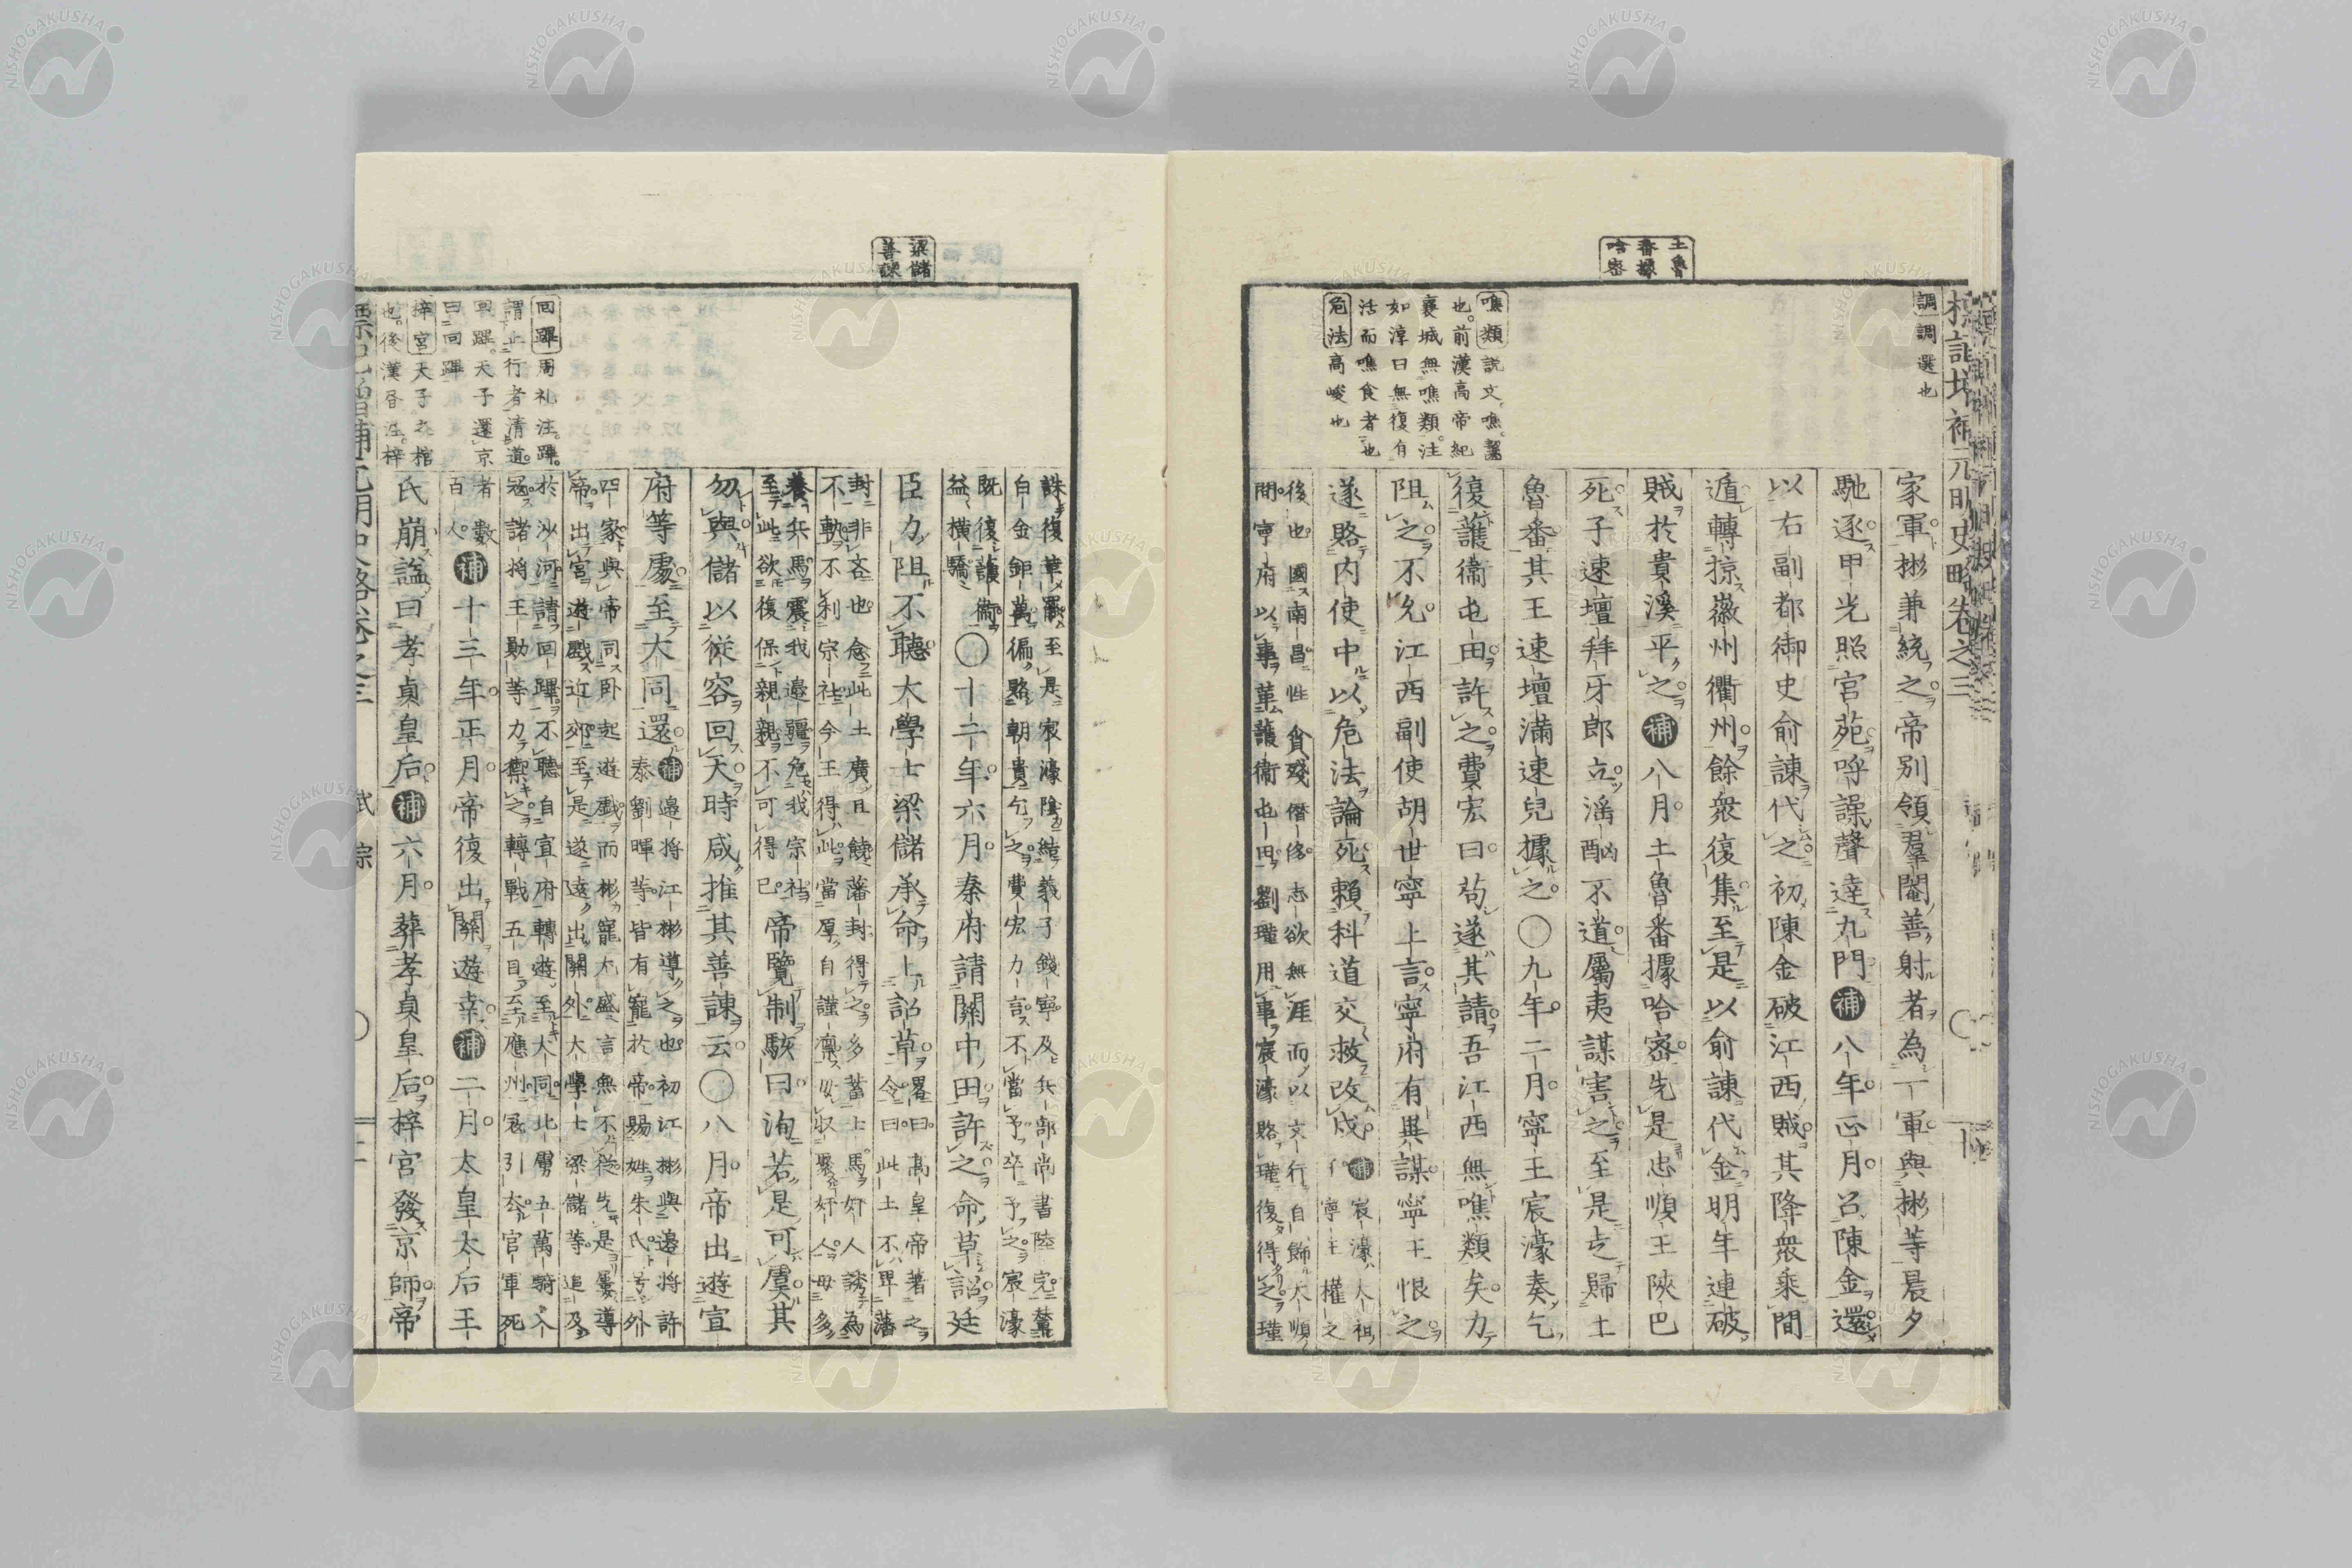 土魯
番據
哈密
調調選也
噍類說文噍齧
也。前漢高帝紀
襄城無噍類。注
如淳曰無復有
活而噍食者也
危法高峻也
家軍彬兼統之帝別領羣閹善射者為一軍與彬等晨夕
馳逐甲光照宮苑呼譟聲達九門補八年正月召陳金還
以右副都御史俞諫代之初陳金破江西賊其降衆乘間
遁轉掠徽州衢州餘衆復集至是以俞諫代金明年連破
賊於貴溪平之補八月土魯番據哈密先是忠順王陝巴
死子速壇拜牙郎立滛酗不道屬夷謀害之至是走歸土
魯番其王速壇滿速兒據之〇九年二月寧王宸濠奏乞
復護衞屯田許之費宏曰苟遂其請吾江西無噍類矣力
阻之不允江西副使胡世寧上言寧府有異謀寧王恨之
遂賂內使中以危法論死賴科道交救改戍補宸濠太祖
子寧王權之
後也國南昌性貪殘僭侈志欲無涯而以文行自飾大順
間寧府以事革護衞屯田劉瑾用事宸濠賂瑾復得之瑾
梁儲
善諫
回蹕周礼注。蹕。
謂止行者清道。
回蹕。天子還京
曰回蹕
梓宮天子之棺
也。後漢書注。梓
誅復革罷至是宸濠陰結義子錢寧及兵部尚書陸完輦
白金鉅萬徧賂朝貴乞之費宏力言不當予卒予之宸濠
既復護衞
益橫驕〇十二年六月秦府請關中田許之命草詔廷
臣力阻不聽大學士梁儲承命上詔草畧曰高皇帝著之
令曰此土不畀藩
封非吝也念此土廣且饒藩封得之多蓄士馬奸人誘為
不軌不利宗社今王得此當厚自謹凜毋収聚奸人毋多
養兵馬震我邊疆危我宗社
至此欲復保親親不可得已帝覽制駭曰洵若是可虞其
勿與儲以從容回天時咸推其善諫云〇八月帝出遊宣
府等處至大同還補邊將江彬導之也初江彬與邊將許
泰劉暉等皆有寵於帝賜姓朱氏号外
四家與帝同卧起遊戲而彬寵尤盛言無不從先是屢導
帝出宮遊戲近郊至是遂遠出關外大學士梁儲等追及
於沙河請回蹕不聽自宣府轉遊至大同北虜五萬騎入
冦諸將王勛等力禦之轉戰五日至應州冦引去官軍死
者數
百人補十三年正月帝復出關遊幸補二月太皇太后王
氏崩諡曰孝貞皇后補六月葬孝貞皇后梓宮發京師帝